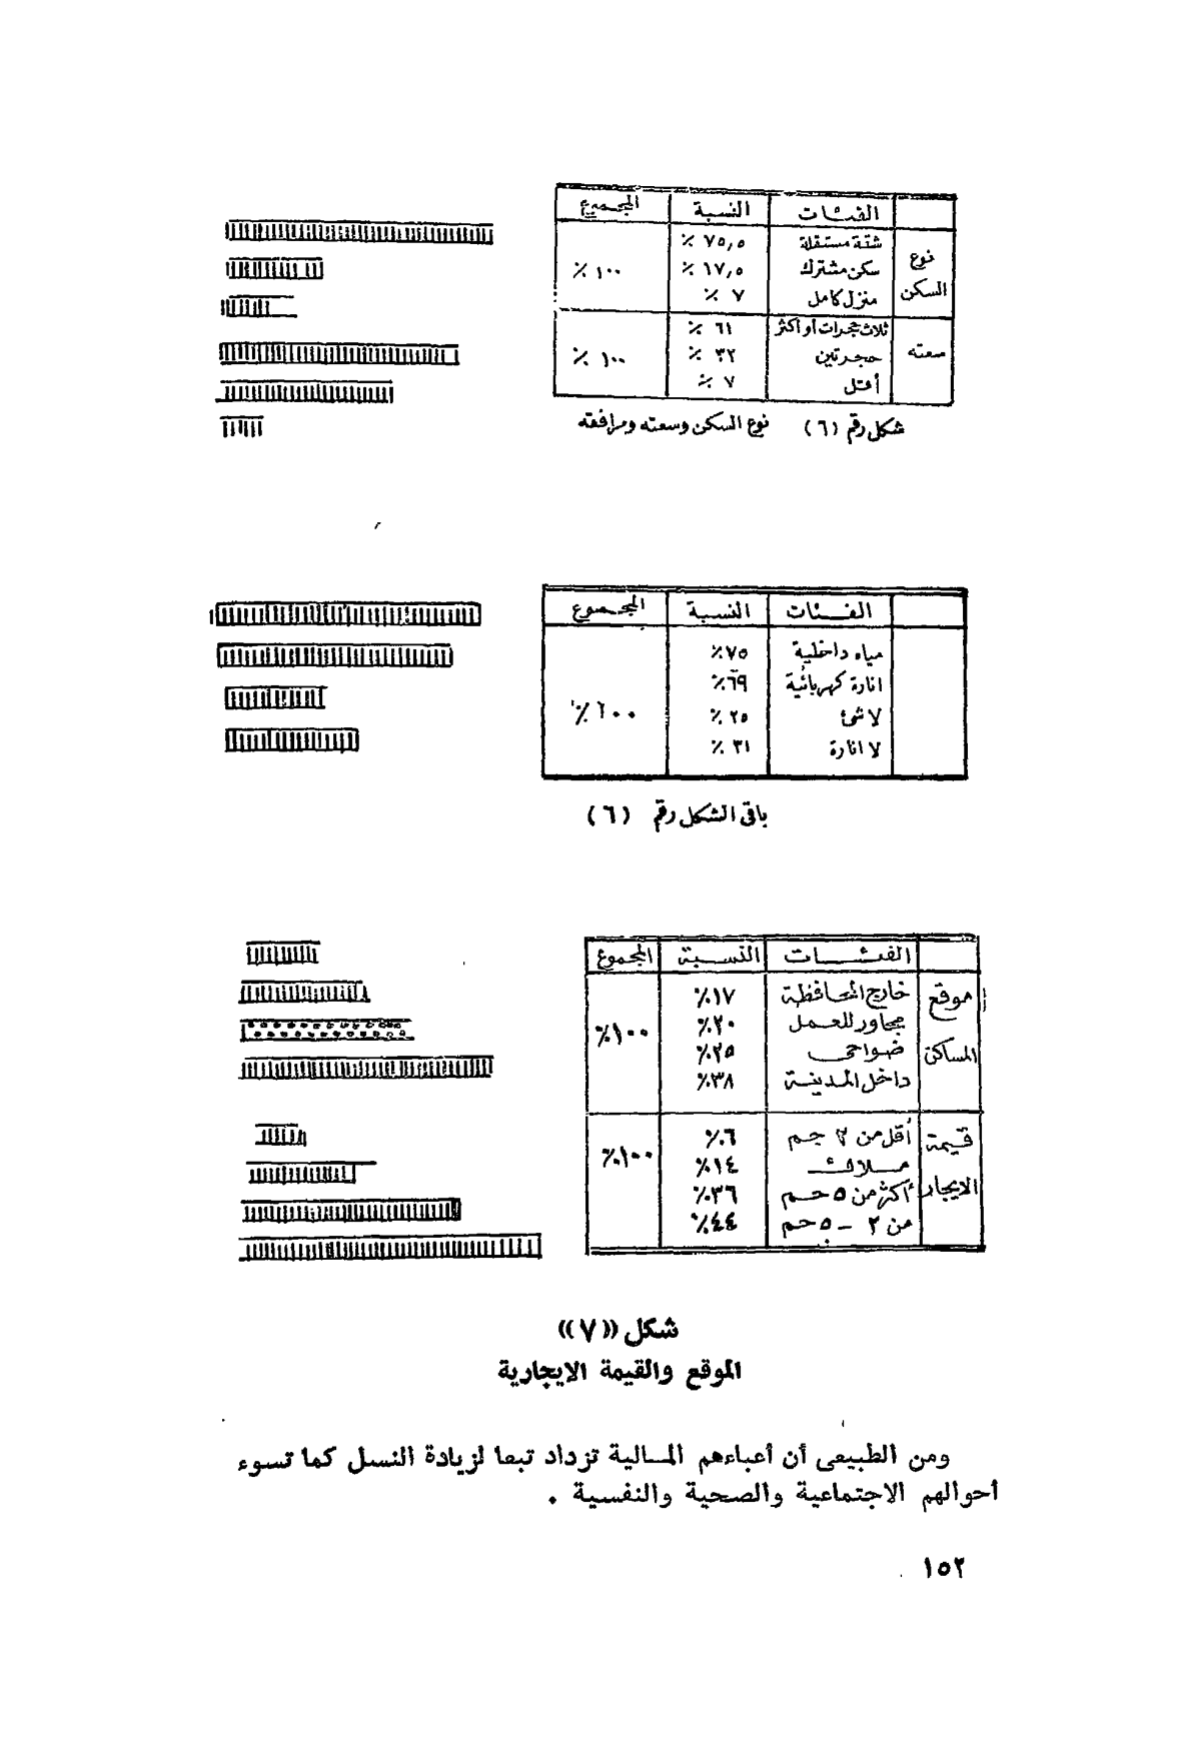 الفئات النسبة المجموع
شقة مستقلة ٧٥,٥ ٪
نوع
سكن مشترك ١٧,٥ ٪ ١٠٠ ٪
السكن
منزل كامل ٧ ٪
ثلاث حجرات أو أكثر ٦١ ٪
سعته حجرتين ٣٢ ٪ ١٠٠ ٪
أقل ٧ ٪
شكل رقم (٦) نوع السكن وسعته ومرافقه
الفئات النسبة المجموع
مياه داخلية ٧٥٪
انارة كهربائية ٦٩٪
لا شئ ٢٥ ٪ ١٠٠٪
لا انارة ٣١ ٪
باقى الشكل رقم (٦)
الفئات النسبة المجموع
موقع خارج المحافظة ١٧٪
مجاور للعمل ٢٠٪ ١٠٠٪
المساكن ضواحى ٢٥٪
داخل المدينة ٣٨٪
قيمة أقل من ٢ جم ٦٪
ملاك ١٤٪ ١٠٠٪
الايجار أكثر من ٥ جم ٣٦٪
من ٢ - ٥ جم ٤٤٪
شكل ((٧))
الموقع والقيمة الايجارية
ومن الطبيعى أن أعباءهم المالية تزداد تبعا لزيادة النسل كما تسوء
أحوالهم الاجتماعية والصحية والنفسية .
١٥٢